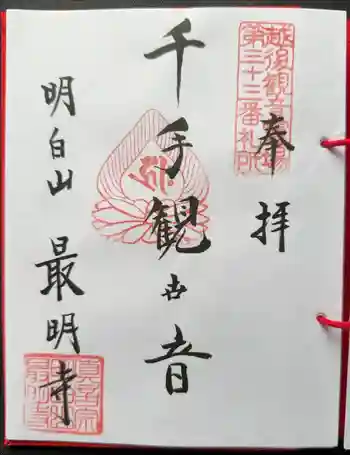 越後観音霊場
第三十三番札所
奉拝
千手観世音
明白山 最明寺
真言宗
最明寺